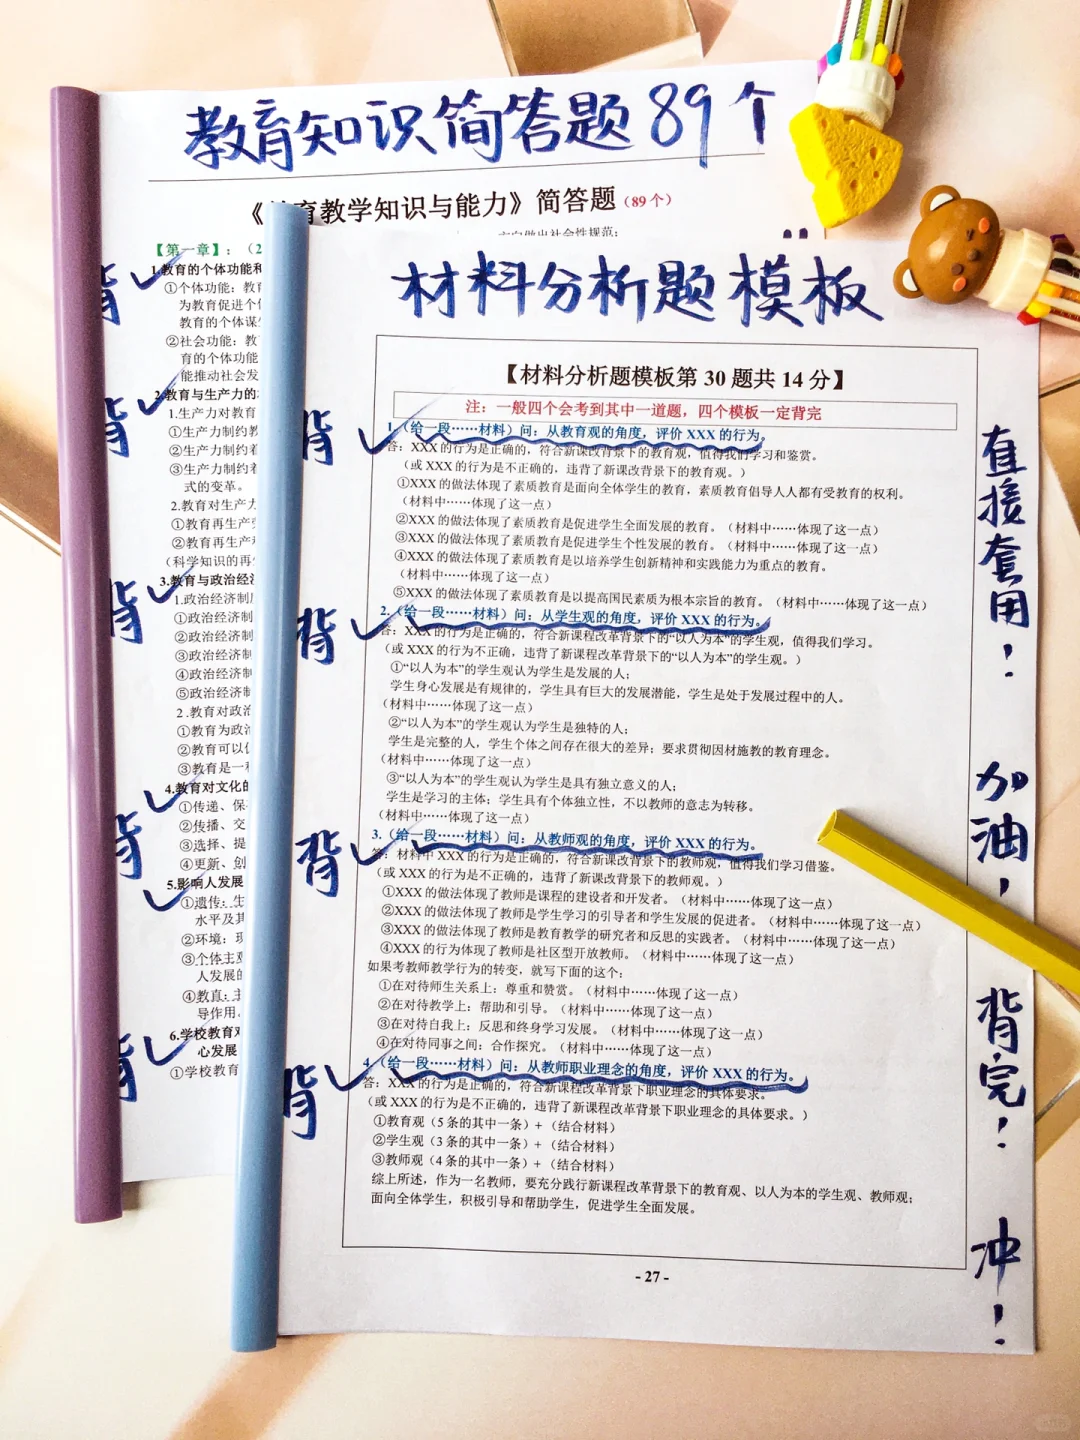 教育知识简答题89个
《育教学知识与能力》简答题（89个）
【第一章】：（2
1.教育的个体功能和
①个体功能：教育
为教育促进个体
教育的个体谋生
②社会功能：教
育的个体功能
能推动社会发
2.教育与生产力的
1.生产力对教育
①生产力制约教
②生产力制约教
③生产力制约着
式的变革。
2.教育对生产力
①教育再生产劳
②教育再生产
（科学知识的再
3.教育与政治经济
1.政治经济制度
①政治经济制
②政治经济制
③政治经济制
④政治经济制
⑤政治经济制
2.教育对政治
①教育为政治
②教育可以
③教育是一
4.教育对文化的
①传递、保
②传播、交
③选择、提
④更新、创
5.影响人发展
①遗传：生
水平及其
②环境：
③个体主观
人发展的
④教育：主
导作用。
6.学校教育
心发展
①学校教育
背
背
背
背
背
材料分析题模板
【材料分析题模板第30题共14分】
注：一般四个会考到其中一道题，四个模板一定背完
背
1.（给一段……材料）问：从教育观的角度，评价XXX的行为。
答：XXX的行为是正确的，符合新课改背景下的教育观，值得我们学习和鉴赏。
（或XXX的行为是不正确的，违背了新课改背景下的教育观。）
①XXX的做法体现了素质教育是面向全体学生的教育，素质教育倡导人人都有受教育的权利。
（材料中……体现了这一点）
②XXX的做法体现了素质教育是促进学生全面发展的教育。（材料中……体现了这一点）
③XXX的做法体现了素质教育是促进学生个性发展的教育。（材料中……体现了这一点）
④XXX的做法体现了素质教育是以培养学生创新精神和实践能力为重点的教育。
（材料中……体现了这一点）
⑤XXX的做法体现了素质教育是以提高国民素质为根本宗旨的教育。（材料中……体现了这一点）
背
2.（给一段……材料）问：从学生观的角度，评价XXX的行为。
答：XXX的行为是正确的，符合新课程改革背景下的“以人为本”的学生观，值得我们学习。
（或XXX的行为不正确，违背了新课程改革背景下的“以人为本”的学生观。）
①“以人为本”的学生观认为学生是发展的人；
学生身心发展是有规律的，学生具有巨大的发展潜能，学生是处于发展过程中的人。
（材料中……体现了这一点）
②“以人为本”的学生观认为学生是独特的人；
学生是完整的人，学生个体之间存在很大的差异；要求贯彻因材施教的教育理念。
（材料中……体现了这一点）
③“以人为本”的学生观认为学生是具有独立意义的人；
学生是学习的主体；学生具有个体独立性，不以教师的意志为转移。
（材料中……体现了这一点）
背
3.（给一段……材料）问：从教师观的角度，评价XXX的行为。
答：材料中XXX的行为是正确的，符合新课改背景下的教师观，值得我们学习借鉴。
（或XXX的行为是不正确的，违背了新课改背景下的教师观。）
①XXX的做法体现了教师是课程的建设者和开发者。（材料中……体现了这一点）
②XXX的做法体现了教师是学生学习的引导者和学生发展的促进者。（材料中……体现了这一点）
③XXX的做法体现了教师是教育教学的研究者和反思的实践者。（材料中……体现了这一点）
④XXX的行为体现了教师是社区型开放教师。（材料中……体现了这一点）
如果考教师教学行为的转变，就写下面的这个：
①在对待师生关系上：尊重和赞赏。（材料中……体现了这一点）
②在对待教学上：帮助和引导。（材料中……体现了这一点）
③在对待自我上：反思和终身学习发展。（材料中……体现了这一点）
④在对待同事之间：合作探究。（材料中……体现了这一点）
背
4.（给一段……材料）问：从教师职业理念的角度，评价XXX的行为。
答：XXX的行为是正确的，符合新课程改革背景下职业理念的具体要求。
（或XXX的行为是不正确的，违背了新课程改革背景下职业理念的具体要求。）
①教育观（5条的其中一条）+（结合材料）
②学生观（3条的其中一条）+（结合材料）
③教师观（4条的其中一条）+（结合材料）
综上所述，作为一名教师，要充分践行新课程改革背景下的教育观、以人为本的学生观、教师观；
面向全体学生，积极引导和帮助学生，促进学生全面发展。
- 27 -
直接套用！
加油，
背完！
冲！